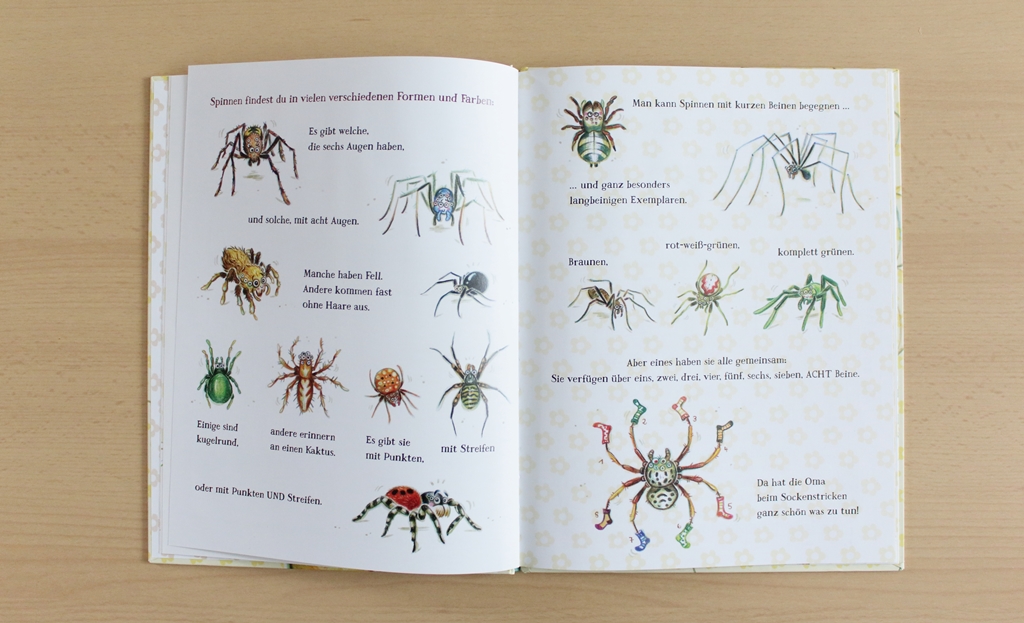 Spinnen findest du in vielen verschiedenen Formen und Farben:
Es gibt welche,
die sechs Augen haben,
und solche, mit acht Augen.
Manche haben Fell.
Andere kommen fast
ohne Haare aus.
Einige sind
kugelrund,
andere erinnern
an einen Kaktus.
Es gibt sie
mit Punkten,
mit Streifen
oder mit Punkten UND Streifen.
Man kann Spinnen mit kurzen Beinen begegnen ...
... und ganz besonders
langbeinigen Exemplaren.
Braunen,
rot-weiß-grünen,
komplett grünen.
Aber eines haben sie alle gemeinsam:
Sie verfügen über eins, zwei, drei, vier, fünf, sechs, sieben, ACHT Beine.
1
2
3
5
7
Da hat die Oma
beim Sockenstricken
ganz schön was zu tun!